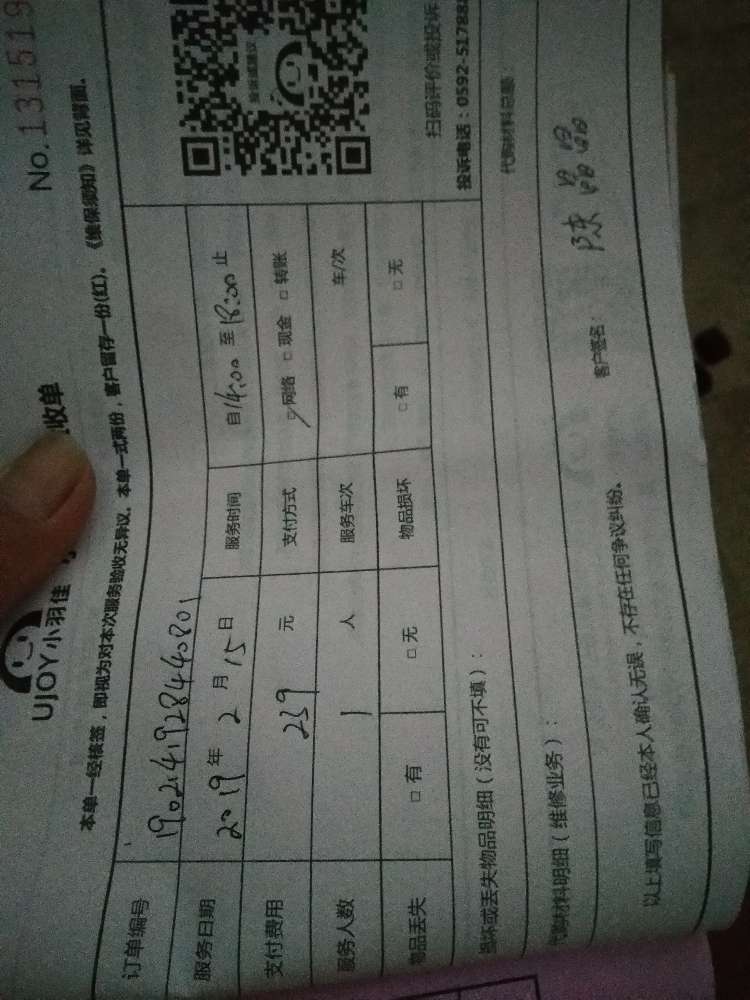 No.131519
UJOY小羽佳 收单
本单一经核签，即视为对本次服务验收无异议。本单一式两份，客户留存一份(红)。《维保须知》详见背面。
订单编号 19021419284440801
服务日期 2019年2月15日 服务时间 自14:00至18:00止
支付费用 239元 支付方式 □网络 □现金 □转账
服务人数 1人 服务车次 车/次
物品丢失 □有 □无 物品损坏 □有 □无
扫码评价或投诉
投诉电话：0592-51788
损坏或丢失物品明细（没有可不填）：
代购材料明细（维修业务）： 代购材料总额：
以上填写信息已经本人确认无误，不存在任何争议纠纷。 客户签名： 陈晶晶